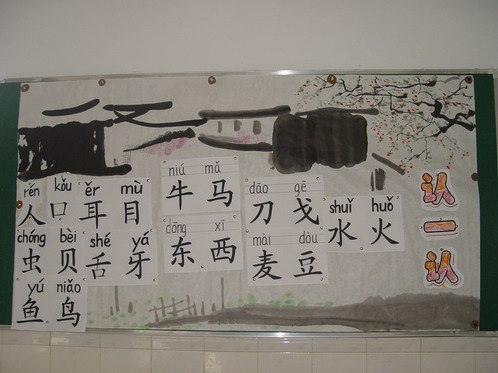 rén kǒu ěr mù
人 口 耳 目
chóng bèi shé yá
虫 贝 舌 牙
yú niǎo
鱼 鸟
niú mǎ
牛 马
dōng xī
东 西
dāo gē
刀 戈
mài dòu
麦 豆
shuǐ huǒ
水 火
认
一
认